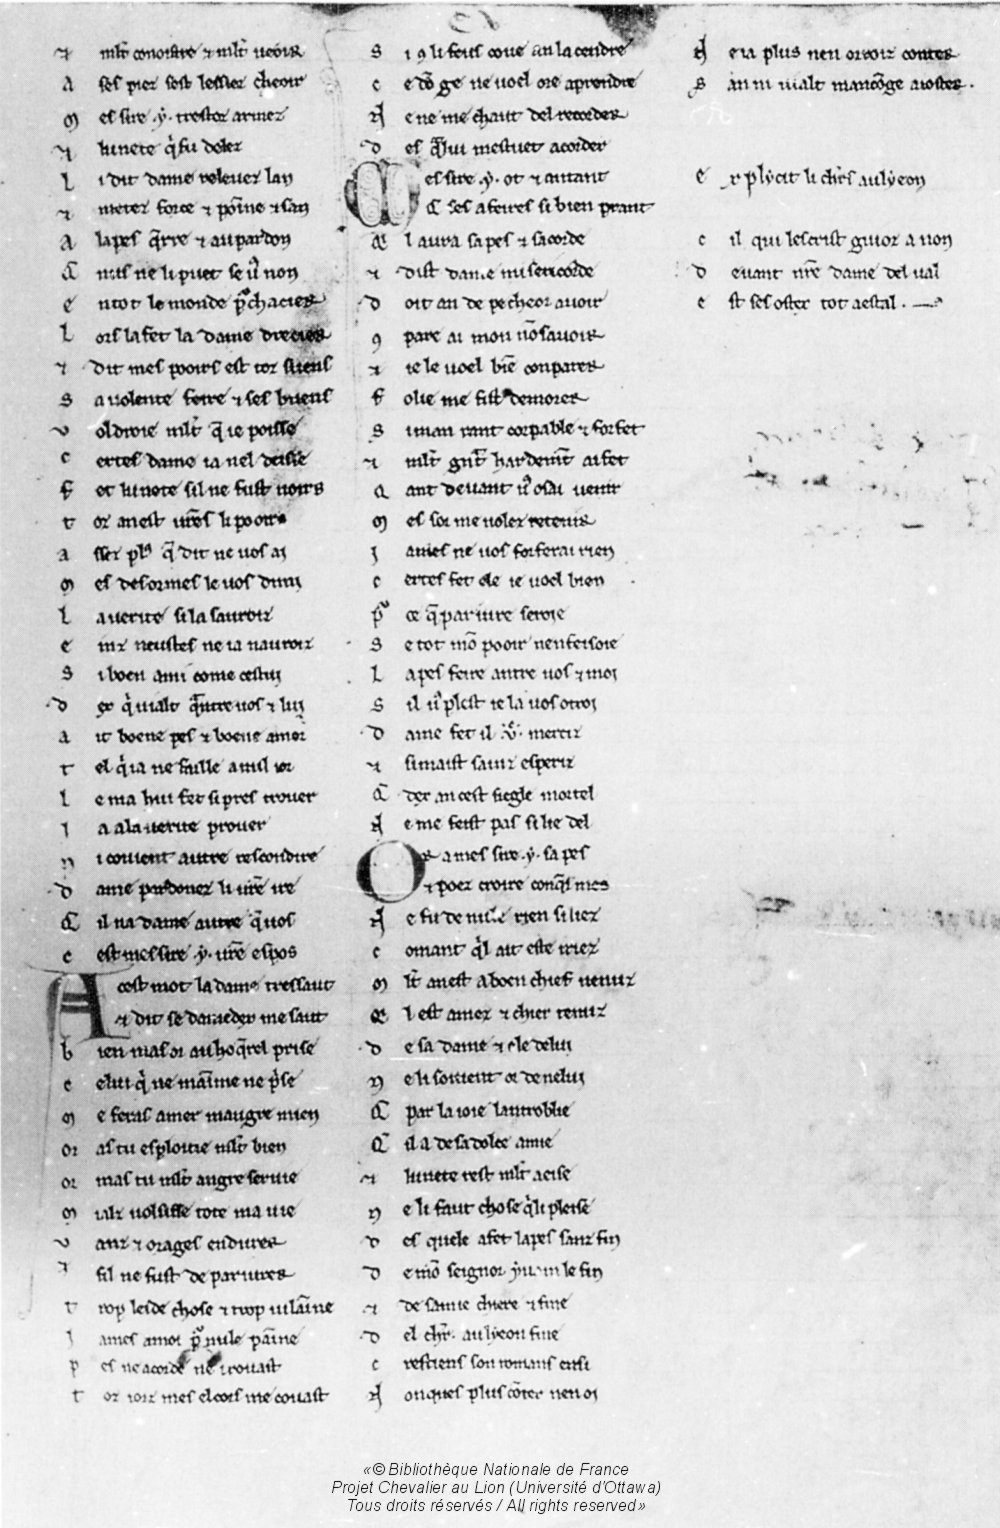 ⁊ ml't conoistre ⁊ ml't ueoir
A ses piez sest lessiee cheoir
Mes sire .y. trestoz armez
⁊ lunete q̇ fu delez
Li dit dame releuez lan
⁊ metez force ⁊ poīne ⁊ san
A la pes q̄rre ⁊ au pardon
Q̄ nus ne li puet se u' non
En tot le monde p̄chacier
Lors la fet la dame drecier
⁊ dit mes pooirs est toz suens
Sa uolente feire ⁊ ses buens
Voldroie ml't q̄ ie poisse
Certes dame ia nel deisse
Fet lunete sil ne fust uoirs
Toz an est ur̄es li pooirs
Assez pl' q̄ dit ne uos ai
Mes desormes le uos dirai
La uerite si la sauroiz
Einz neustes ne ia nauroiz
Si boen ami come cestui
Dex q̇ uialt q̄ntre uos ⁊ lui
Ait boene pes ⁊ boene amor
Tel q̇ ia ne faille a nul ior
Le ma hui fet si pres trouer
Ia a la uerite prouer
Ni couient autre rescondire
Dame pardonez li ur̄e ire
Q̄ il na dame autre q̄ uos
Cest mes sire .y. ur̄e espos
A cest mot la dame tressaut
⁊ dit se damedex me saut
Bien mas or au hoq̄rel prise
Celui q̇ ne māime ne ṗse
Me feras amer maugre mien
Or as tu esploitie ml't bien
Or mas tu ml't an gre seruie
Mialz uolsisse tote ma uie
Vanz ⁊ orages endurer
⁊ sil ne fust de pariurer
Trop leide chose ⁊ trop uilāine
Iames a moi p̄ nule pāine
Pes ne acorde ne trouast
Toz iorz mes el cors me couast
Si 9 li feus coue an la cendre
Ce dō ge ne uoel ore aprendre
Ne ne me chaut del recorder
Des q̄ lui mestuet acorder
Mes sire .y. ot ⁊ antant
Q̄ ses afeires si bien prant
Qel aura sa pes ⁊ sacorde
⁊ dist dame misericorde
Doit an de pecheor auoir
9pare ai mon nō sauoir
⁊ ie le uoel biē conparer
Folie me fist demorer
Si man rant corpable ⁊ forfet
⁊ ml't gn̄t hardemt̄ ai fet
Qant deuant u' osai uenir
Mes sor me uolez retenir
Iames ne uos forferai rien
Certes fet ele ie uoel bien
P̄ ce q̄ pariure seroie
Se tot mō pooir nen feisoie
La pes feire antre uos ⁊ moi
Sil u' plest ie la uos otroi
Dame fet il .vͨ. merciz
⁊ si maist sainz esperiz
Q̄ dex an cest siegle mortel
Ne me feist pas si lie del
Or a mes sire .y. sa pes
⁊ poez croire conq̄s mes
Ne fu de nule rien si liez
Comant q̇l ait este iriez
Ml't an est a boen chief uenuz
Qel est amez ⁊ chier tenuz
De sa dame ⁊ ele de lui
Ne li souient or de nelui
Q̄ par la ioie lantroblie
Q̄ il a de sa dolce amie
⁊ lunete rest ml't a eise
Ne li faut chose q̇ li pleise
Des quele a fet la pes sanz fin
De mō seignor .y. le fin
⁊ de samie chiere ⁊ fine
Del chr̄. au lyeon fine
Crestiens son romans ensi
Nonques plus cōter nen oi
Ne ia plus nen orroiz conter
San ni uialt mancōge aioster.
Explycit li chl'rs au lyeon
Cil qui lescrist guioz a non
Deuant nr̄e dame del ual
Est ses ostex tot a estal.
«© Bibliothèque Nationale de France
Projet Chevalier au Lion (Université d'Ottawa)
Tous droits réservés / All rights reserved»